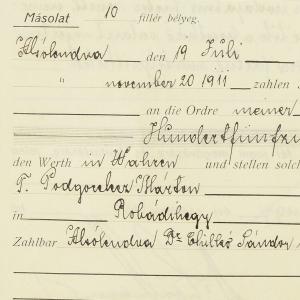 Másolat 10 fillér bélyeg.
Alsólendva den 19 Juli
" november 20 1911 zahlen
an die Ordre meiner
Hundertfünfzi
den Werth in Waaren und stellen solch
T. Podgorelecz Márton
in Robádihegy
Zahlbar Alsólendva Dr Sándor